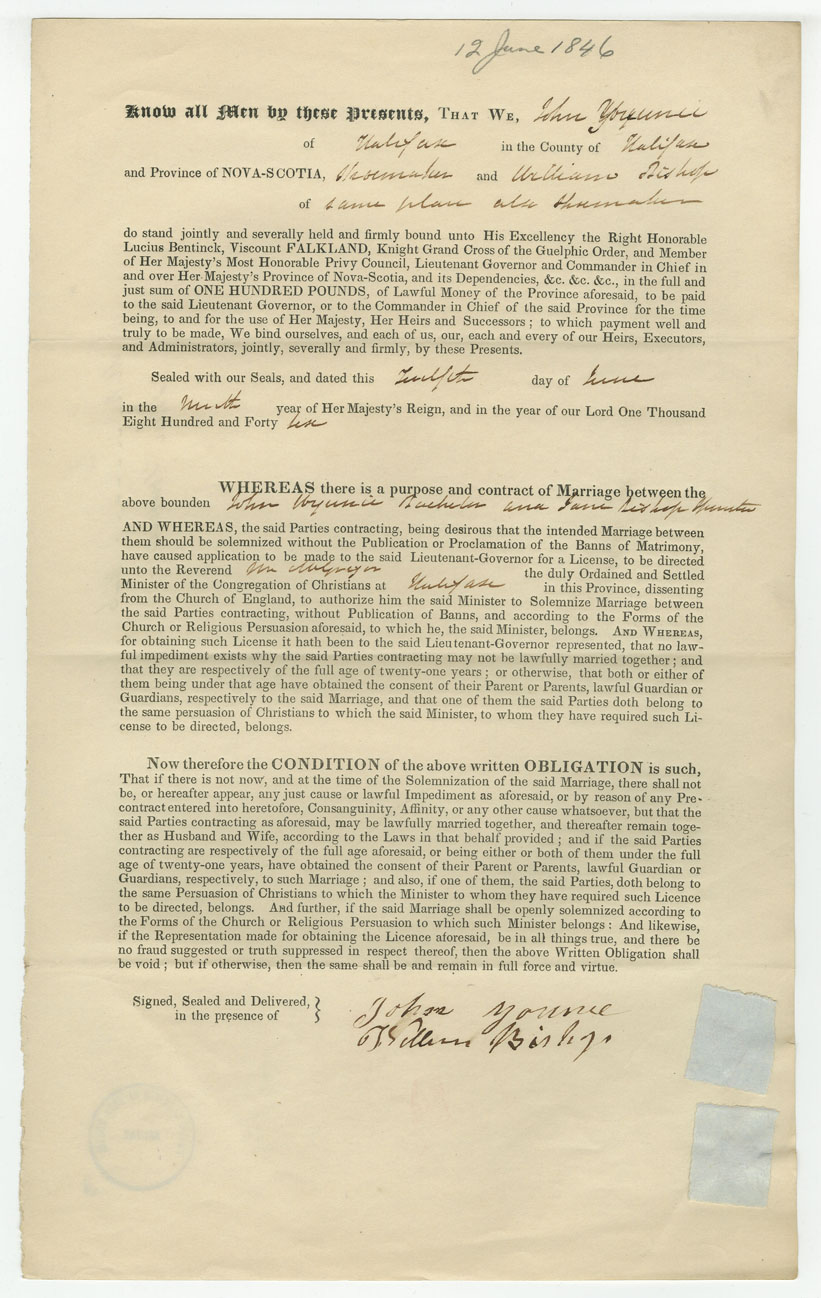 12 June 1846
Know all Men by these Presents, THAT WE, John
of Halifax in the County of Halifax
and Province of NOVA-SCOTIA, Shoemaker and William Bishop
of same place also shoemaker
do stand jointly and severally held and firmly bound unto His Excellency the Right Honorable
Lucius Bentinck, Viscount FALKLAND, Knight Grand Cross of the Guelphic Order, and Member
of Her Majesty's Most Honorable Privy Council, Lieutenant Governor and Commander in Chief in
and over Her Majesty's Province of Nova-Scotia, and its Dependencies, &c. &c. &c., in the full and
just sum of ONE HUNDRED POUNDS, of Lawful Money of the Province aforesaid, to be paid
to the said Lieutenant Governor, or to the Commander in Chief of the said Province for the time
being, to and for the use of Her Majesty, Her Heirs and Successors ; to which payment well and
truly to be made, We bind ourselves, and each of us, our, each and every of our Heirs, Executors,
and Administrators, jointly, severally and firmly, by these Presents.
Sealed with our Seals, and dated this Twelfth day of June
in the Ninth year of Her Majesty's Reign, and in the year of our Lord One Thousand
Eight Hundred and Forty six
WHEREAS there is a purpose and contract of Marriage between the
above bounden John Bachelor and Jane Bishop Spinster
AND WHEREAS, the said Parties contracting, being desirous that the intended Marriage between
them should be solemnized without the Publication or Proclamation of the Banns of Matrimony,
have caused application to be made to the said Lieutenant-Governor for a License, to be directed
unto the Reverend McGregor the duly Ordained and Settled
Minister of the Congregation of Christians at Halifax in this Province, dissenting
from the Church of England, to authorize him the said Minister to Solemnize Marriage between
the said Parties contracting, without Publication of Banns, and according to the Forms of the
Church or Religious Persuasion aforesaid, to which he, the said Minister, belongs. AND WHEREAS,
for obtaining such License it hath been to the said Lieutenant-Governor represented, that no law-
ful impediment exists why the said Parties contracting may not be lawfully married together ; and
that they are respectively of the full age of twenty-one years ; or otherwise, that both or either of
them being under that age have obtained the consent of their Parent or Parents, lawful Guardian or
Guardians, respectively to the said Marriage, and that one of them the said Parties doth belong to
the same persuasion of Christians to which the said Minister, to whom they have required such Li-
cense to be directed, belongs.
Now therefore the CONDITION of the above written OBLIGATION is such,
That if there is not now, and at the time of the Solemnization of the said Marriage, there shall not
be, or hereafter appear, any just cause or lawful Impediment as aforesaid, or by reason of any Pre-
contract entered into heretofore, Consanguinity, Affinity, or any other cause whatsoever, but that the
said Parties contracting as aforesaid, may be lawfully married together, and thereafter remain toge-
ther as Husband and Wife, according to the Laws in that behalf provided ; and if the said Parties
contracting are respectively of the full age aforesaid, or being either or both of them under the full
age of twenty-one years, have obtained the consent of their Parent or Parents, lawful Guardian or
Guardians, respectively, to such Marriage ; and also, if one of them, the said Parties, doth belong to
the same Persuasion of Christians to which the Minister to whom they have required such Licence
to be directed, belongs. And further, if the said Marriage shall be openly solemnized according to
the Forms of the Church or Religious Persuasion to which such Minister belongs : And likewise,
if the Representation made for obtaining the Licence aforesaid, be in all things true, and there be
no fraud suggested or truth suppressed in respect thereof, then the above Written Obligation shall
be void ; but if otherwise, then the same shall be and remain in full force and virtue.
Signed, Sealed and Delivered,
in the presence of
John Younie
William Bishop